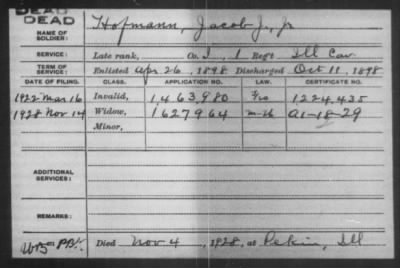 DEAD
DEAD
NAME OF SOLDIER: Hofmann, Jacob J., Jr
SERVICE: Late rank, Co. I, 1 Reg't Ill Cav
TERM OF SERVICE: Enlisted Apr 26, 1898 Discharged Oct 11, 1898
DATE OF FILING. CLASS. APPLICATION NO. CERTIFICATE NO.
1922 Mar 16 Invalid, 1,463,980 1,224,435
1928 Nov 14 Widow, 1627964 A1-18-29
Minor,
ADDITIONAL SERVICES:
REMARKS:
Died Nov 4, 1928, at Pekin, Ill